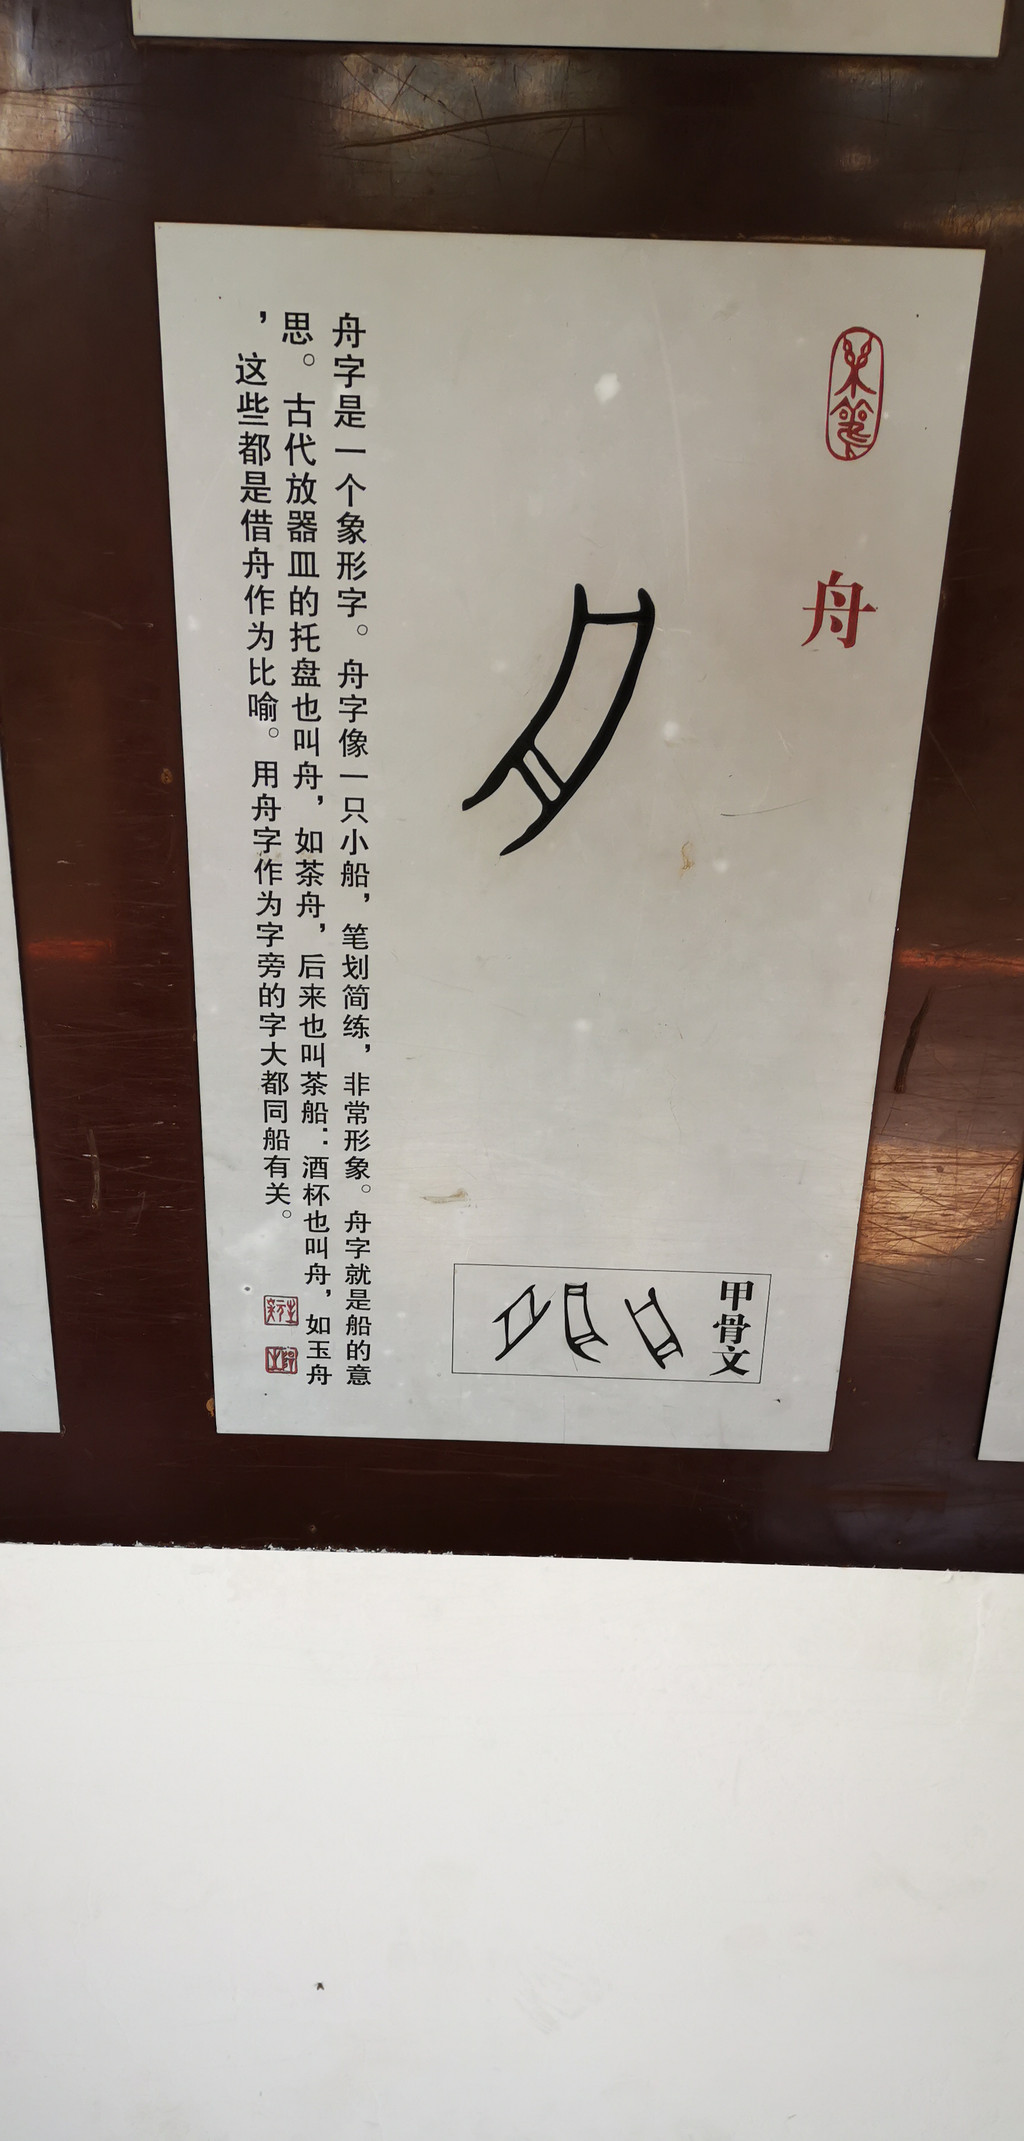 舟
舟字是一个象形字。舟字像一只小船，笔划简练，非常形象。舟字就是船的意
思。古代放器皿的托盘也叫舟，如茶舟，后来也叫茶船：酒杯也叫舟，如玉舟
，这些都是借舟作为比喻。用舟字作为字旁的字大都同船有关。
甲骨文